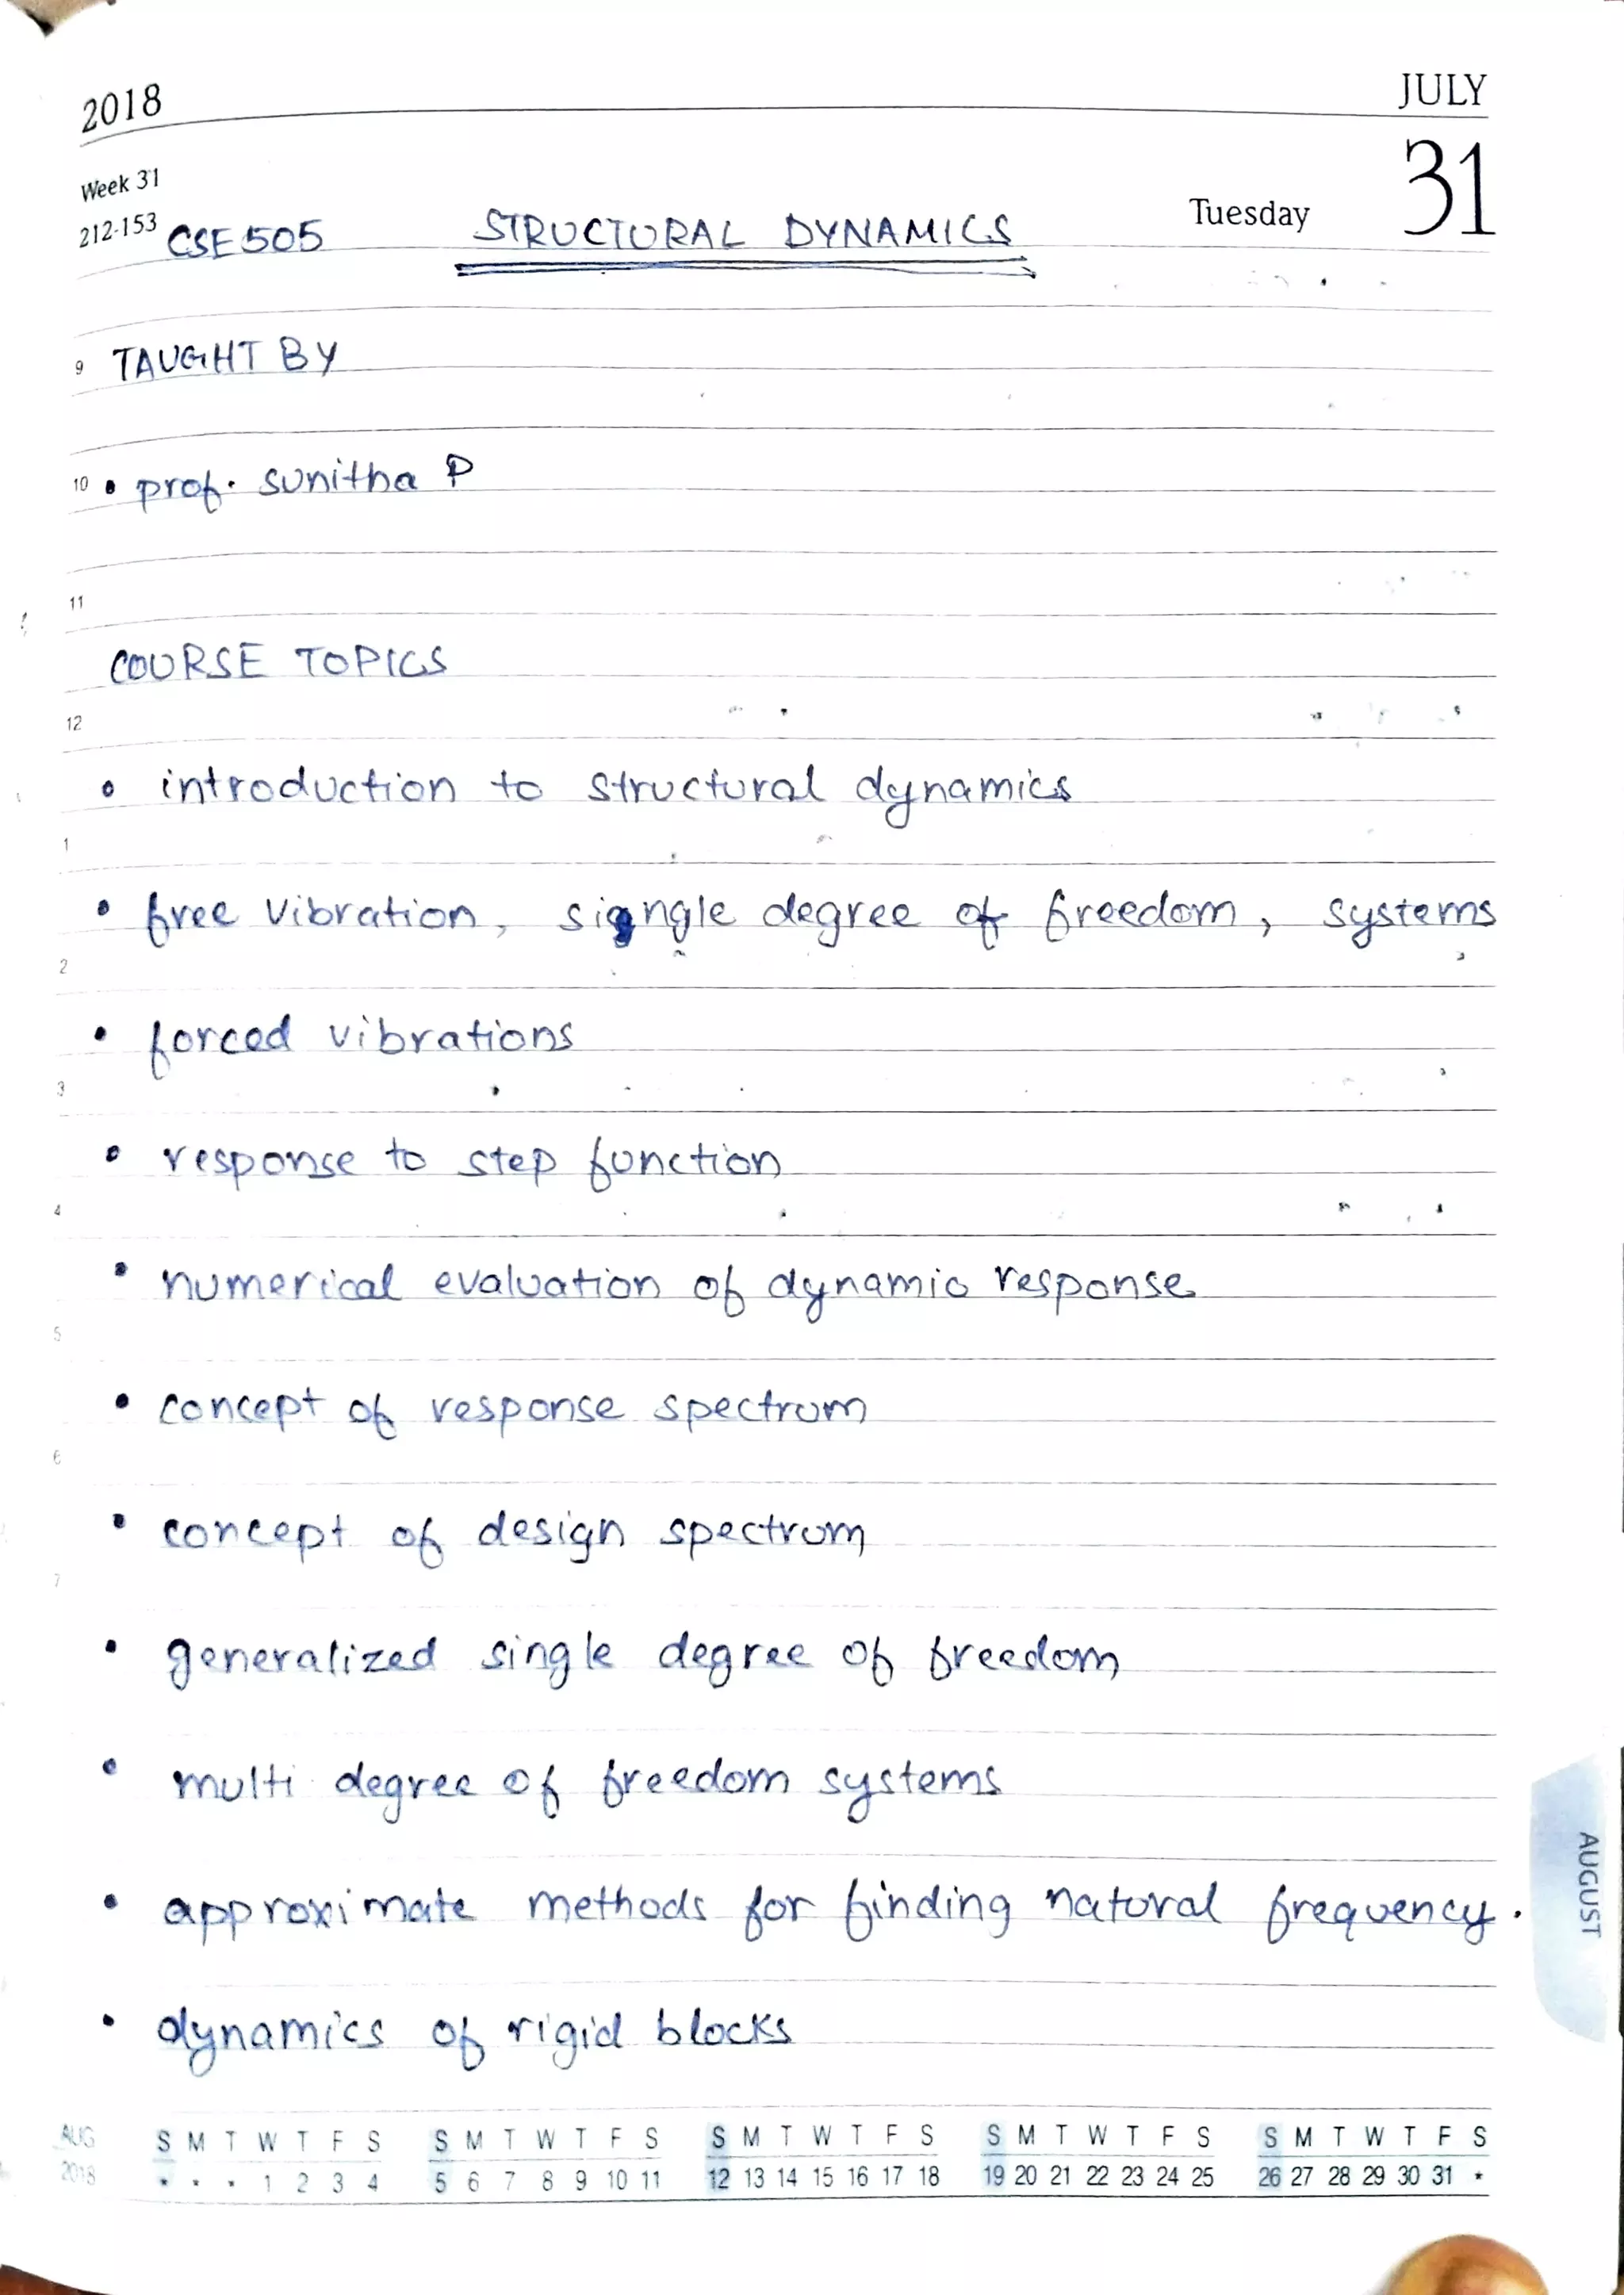 2018 JULY
Week 31
212-153 Tuesday 31
CSE505 STRUCTURAL DYNAMICS
9 TAUGHT BY
10 • prof. sunitha P
11
COURSE TOPICS
12
• introduction to structural dynamics
1
• free vibration, singngle degree of freedom, systems
2
• forced vibrations
3
• response to step function
4
• numerical evaluation of dynamic response
5
• concept of response spectrum
6
• concept of design spectrum
7
• generalized single degree of freedom
• multi degree of freedom systems
• approximate methods for finding natural frequency.
AUGUST
• dynamics of rigid blocks
AUG S M T W T F S S M T W T F S S M T W T F S S M T W T F S S M T W T F S
2018 * * * 1 2 3 4 5 6 7 8 9 10 11 12 13 14 15 16 17 18 19 20 21 22 23 24 25 26 27 28 29 30 31 *